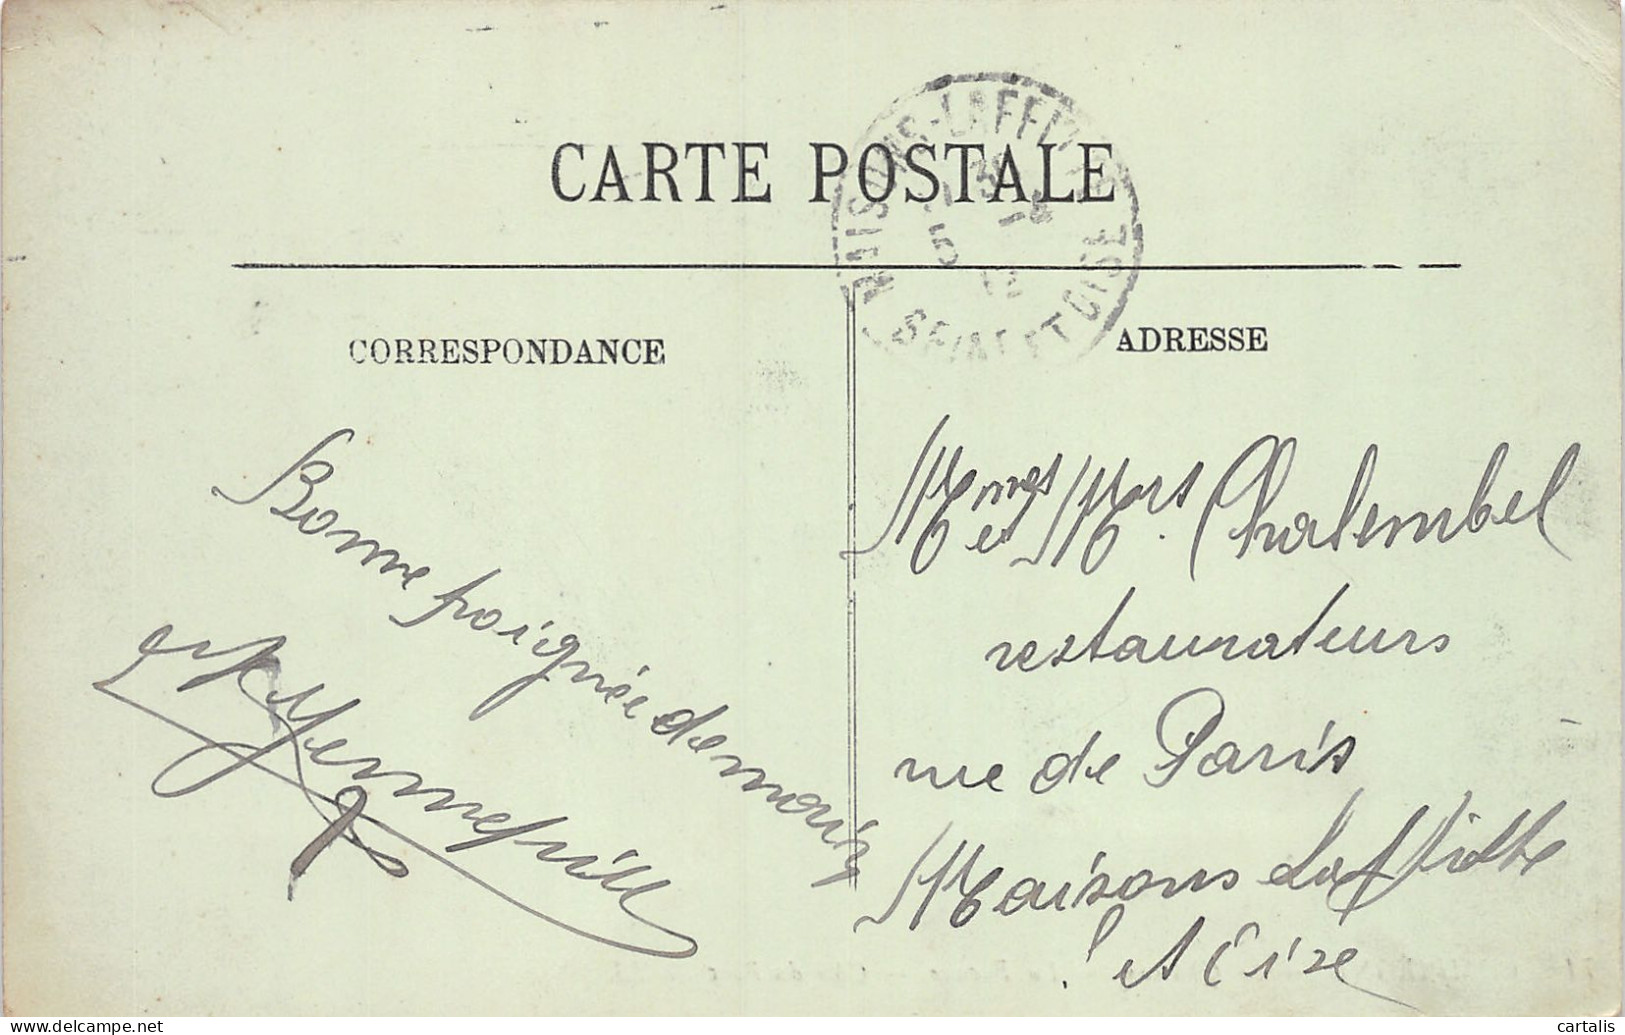 CARTE POSTALE
MAISONS-LAFFITTE
SEINE ET OISE
CORRESPONDANCE
ADRESSE
Bonne poignée de main
Mmes et Mrs Chalembel
restaurateurs
rue de Paris
Maisons Laffitte
S et Oise
www.delcampe.net
cartalis